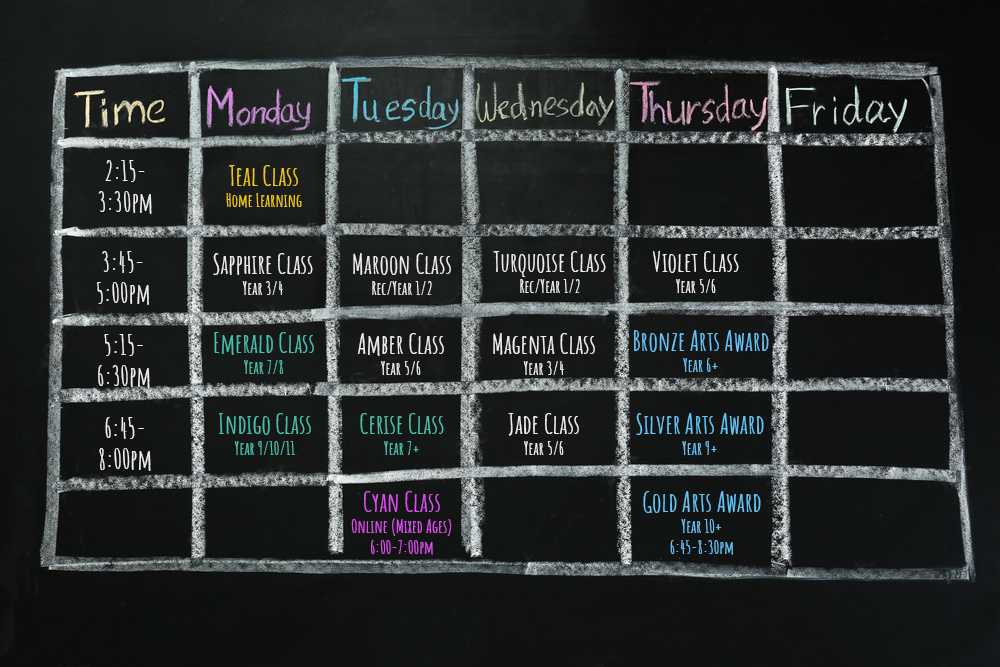 Time Monday Tuesday Wednesday Thursday Friday
2:15-
3:30pm
Teal Class
Home Learning
3:45-
5:00pm
Sapphire Class
Year 3/4
Maroon Class
Rec/Year 1/2
Turquoise Class
Rec/Year 1/2
Violet Class
Year 5/6
5:15-
6:30pm
Emerald Class
Year 7/8
Amber Class
Year 5/6
Magenta Class
Year 3/4
Bronze Arts Award
Year 6+
6:45-
8:00pm
Indigo Class
Year 9/10/11
Cerise Class
Year 7+
Jade Class
Year 5/6
Silver Arts Award
Year 9+
Cyan Class
Online (Mixed Ages)
6:00-7:00pm
Gold Arts Award
Year 10+
6:45-8:30pm